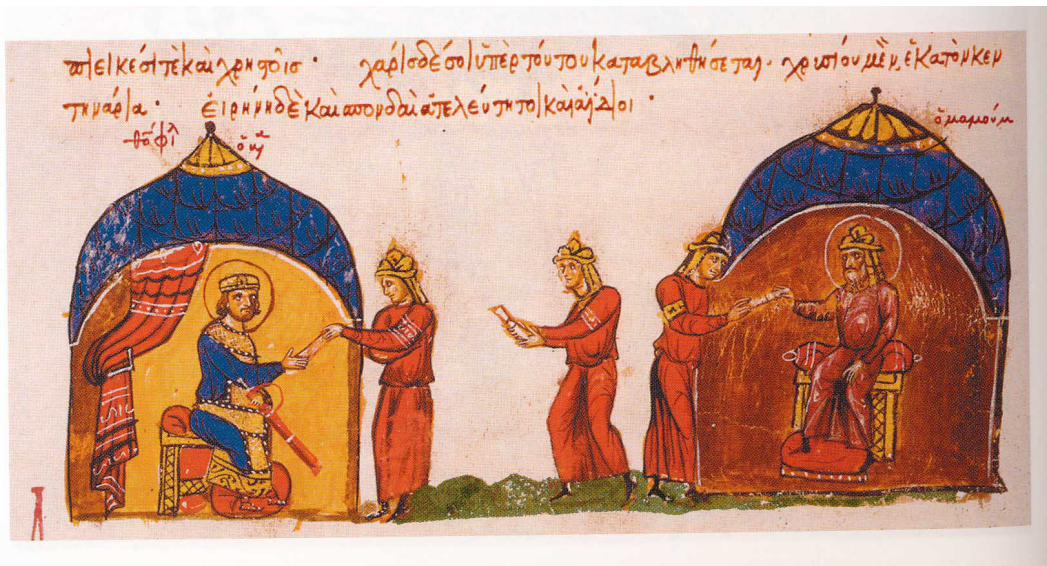 ἐπιεικέσι τὲ καὶ χρηστοῖς · χάρις δέ σοι ὑπὲρ τούτου καταβληθήσεται · χρυσίου μὲν, ἑκατὸν κεν
τηνάρια · εἰρήνη δὲ καὶ σπονδαὶ ἀτελεύτητοι καὶ ἀΐδιοι ·
ὁ μαμούμ